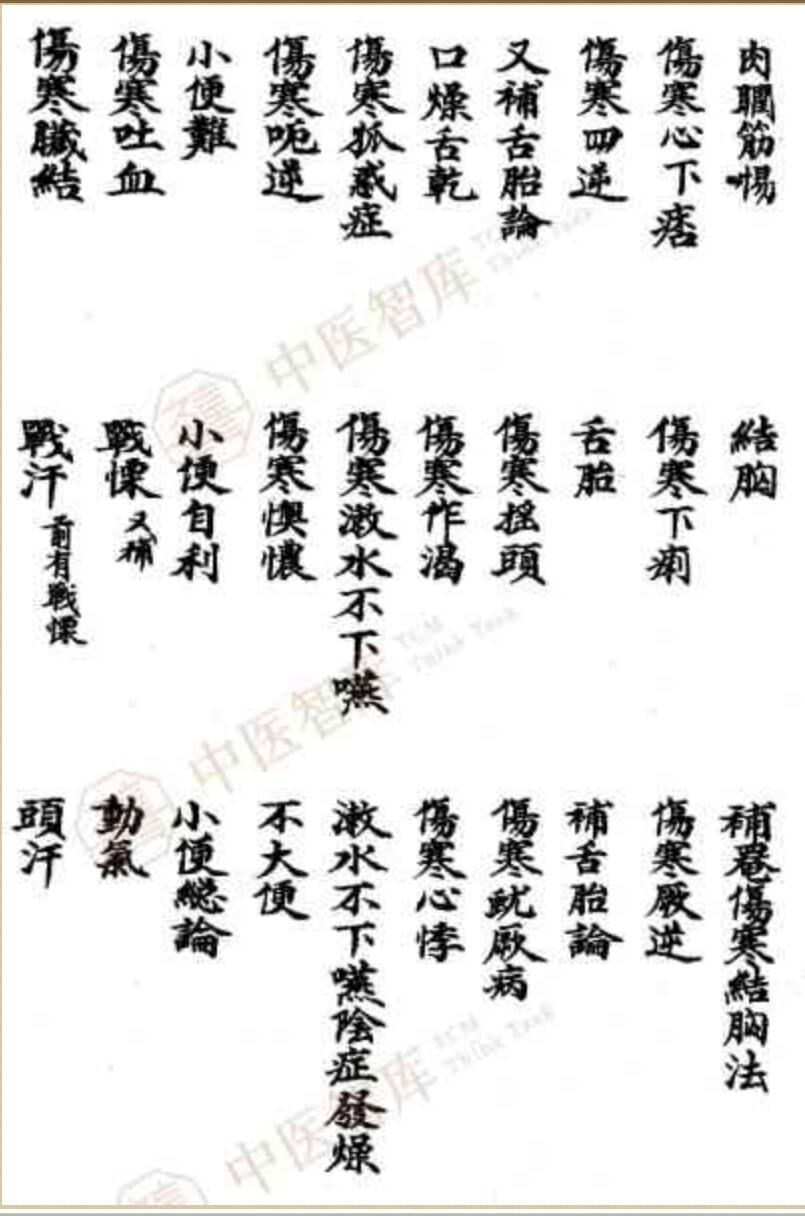 肉瞤筋惕 結胸 補卷傷寒結胸法
傷寒心下痞 傷寒下痢 傷寒厥逆
傷寒四逆 舌胎 補舌胎論
又補舌胎論 傷寒摇頭 傷寒蚘厥病
口燥舌乾 傷寒作渴 傷寒心悸
傷寒狐惑症 傷寒漱水不下嚥 漱水不下嚥陰症發燥
傷寒呃逆 傷寒懊憹 不大便
小便難 小便自利 小便総論
傷寒吐血 戰慄 又補 動氣
傷寒臟結 戰汗 前有戰慄 頭汗
中医智库
TCM Think Tank
中医智库
TCM Think Tank
中医智库
TCM Think Tank